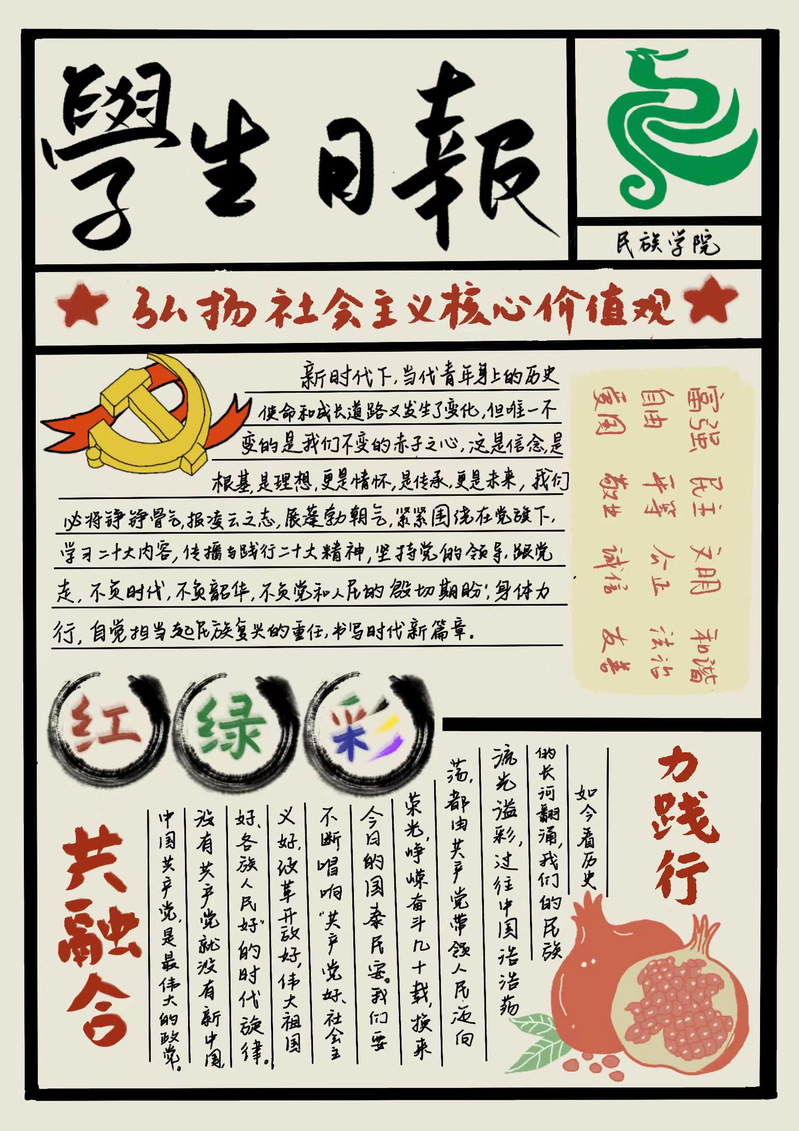 學生日報
民族学院
弘扬社会主义核心价值观
新时代下，当代青年身上的历史
使命和成长道路又发生了变化，但唯一不
变的是我们不变的赤子之心，这是信念，是
根基，是理想，更是情怀，是传承，更是未来，我们
必将铮铮骨气，报凌云之志，展蓬勃朝气，紧紧围绕在党旗下，
学习二十大内容，传播与践行二十大精神，坚持党的领导，跟党
走，不负时代，不负韶华，不负党和人民的殷切期盼；身体力
行，自觉担当起民族复兴的重任，书写时代新篇章。
富强 民主 文明 和谐
自由 平等 公正 法治
爱国 敬业 诚信 友善
红 绿 彩
力践行
如今看历史
的长河翻涌，我们的民族
流光溢彩，过往中国浩浩荡
荡，都由共产党带领人民迈向
荣光，峥嵘奋斗几十载，换来
今日的国泰民安。我们要
不断唱响“共产党好、社会主
义好、改革开放好、伟大祖国
好、各族人民好”的时代旋律。
没有共产党就没有新中国，
中国共产党，是最伟大的政党。
共融合